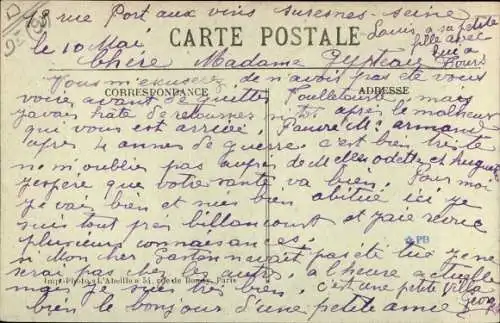 18 rue Port aux vins Suresnes Seine
le 10 Mai
CARTE POSTALE
Louis a sa petite
fille avec
lui a
Tours
Chère Madame
Vous m'excuserez de n'avoir pas été vous
CORRESPONDANCE
ADRESSE
voir avant de quitter mais
j'avais hâte de retourner après le malheur
qui vous est arrivé. Pauvre Mr armand
après 4 années de guerre c'est bien triste
ne m'oublier pas auprès de Melles odette et
j'espère que votre santé va bien. Pour moi
je vais bien et suis bien abituée ici je
suis tout près billancourt et j'aie
plusieurs connaissances.
PB
si Mon cher Gaston n'avait pas été lui je ne
serai pas chez les autres. a l'heure actuelle
Imp-Photo L'Abeille 54, rue de Paris
mais je suis très bien, c'est une petite villa
bien le bonjour d'une petite amie